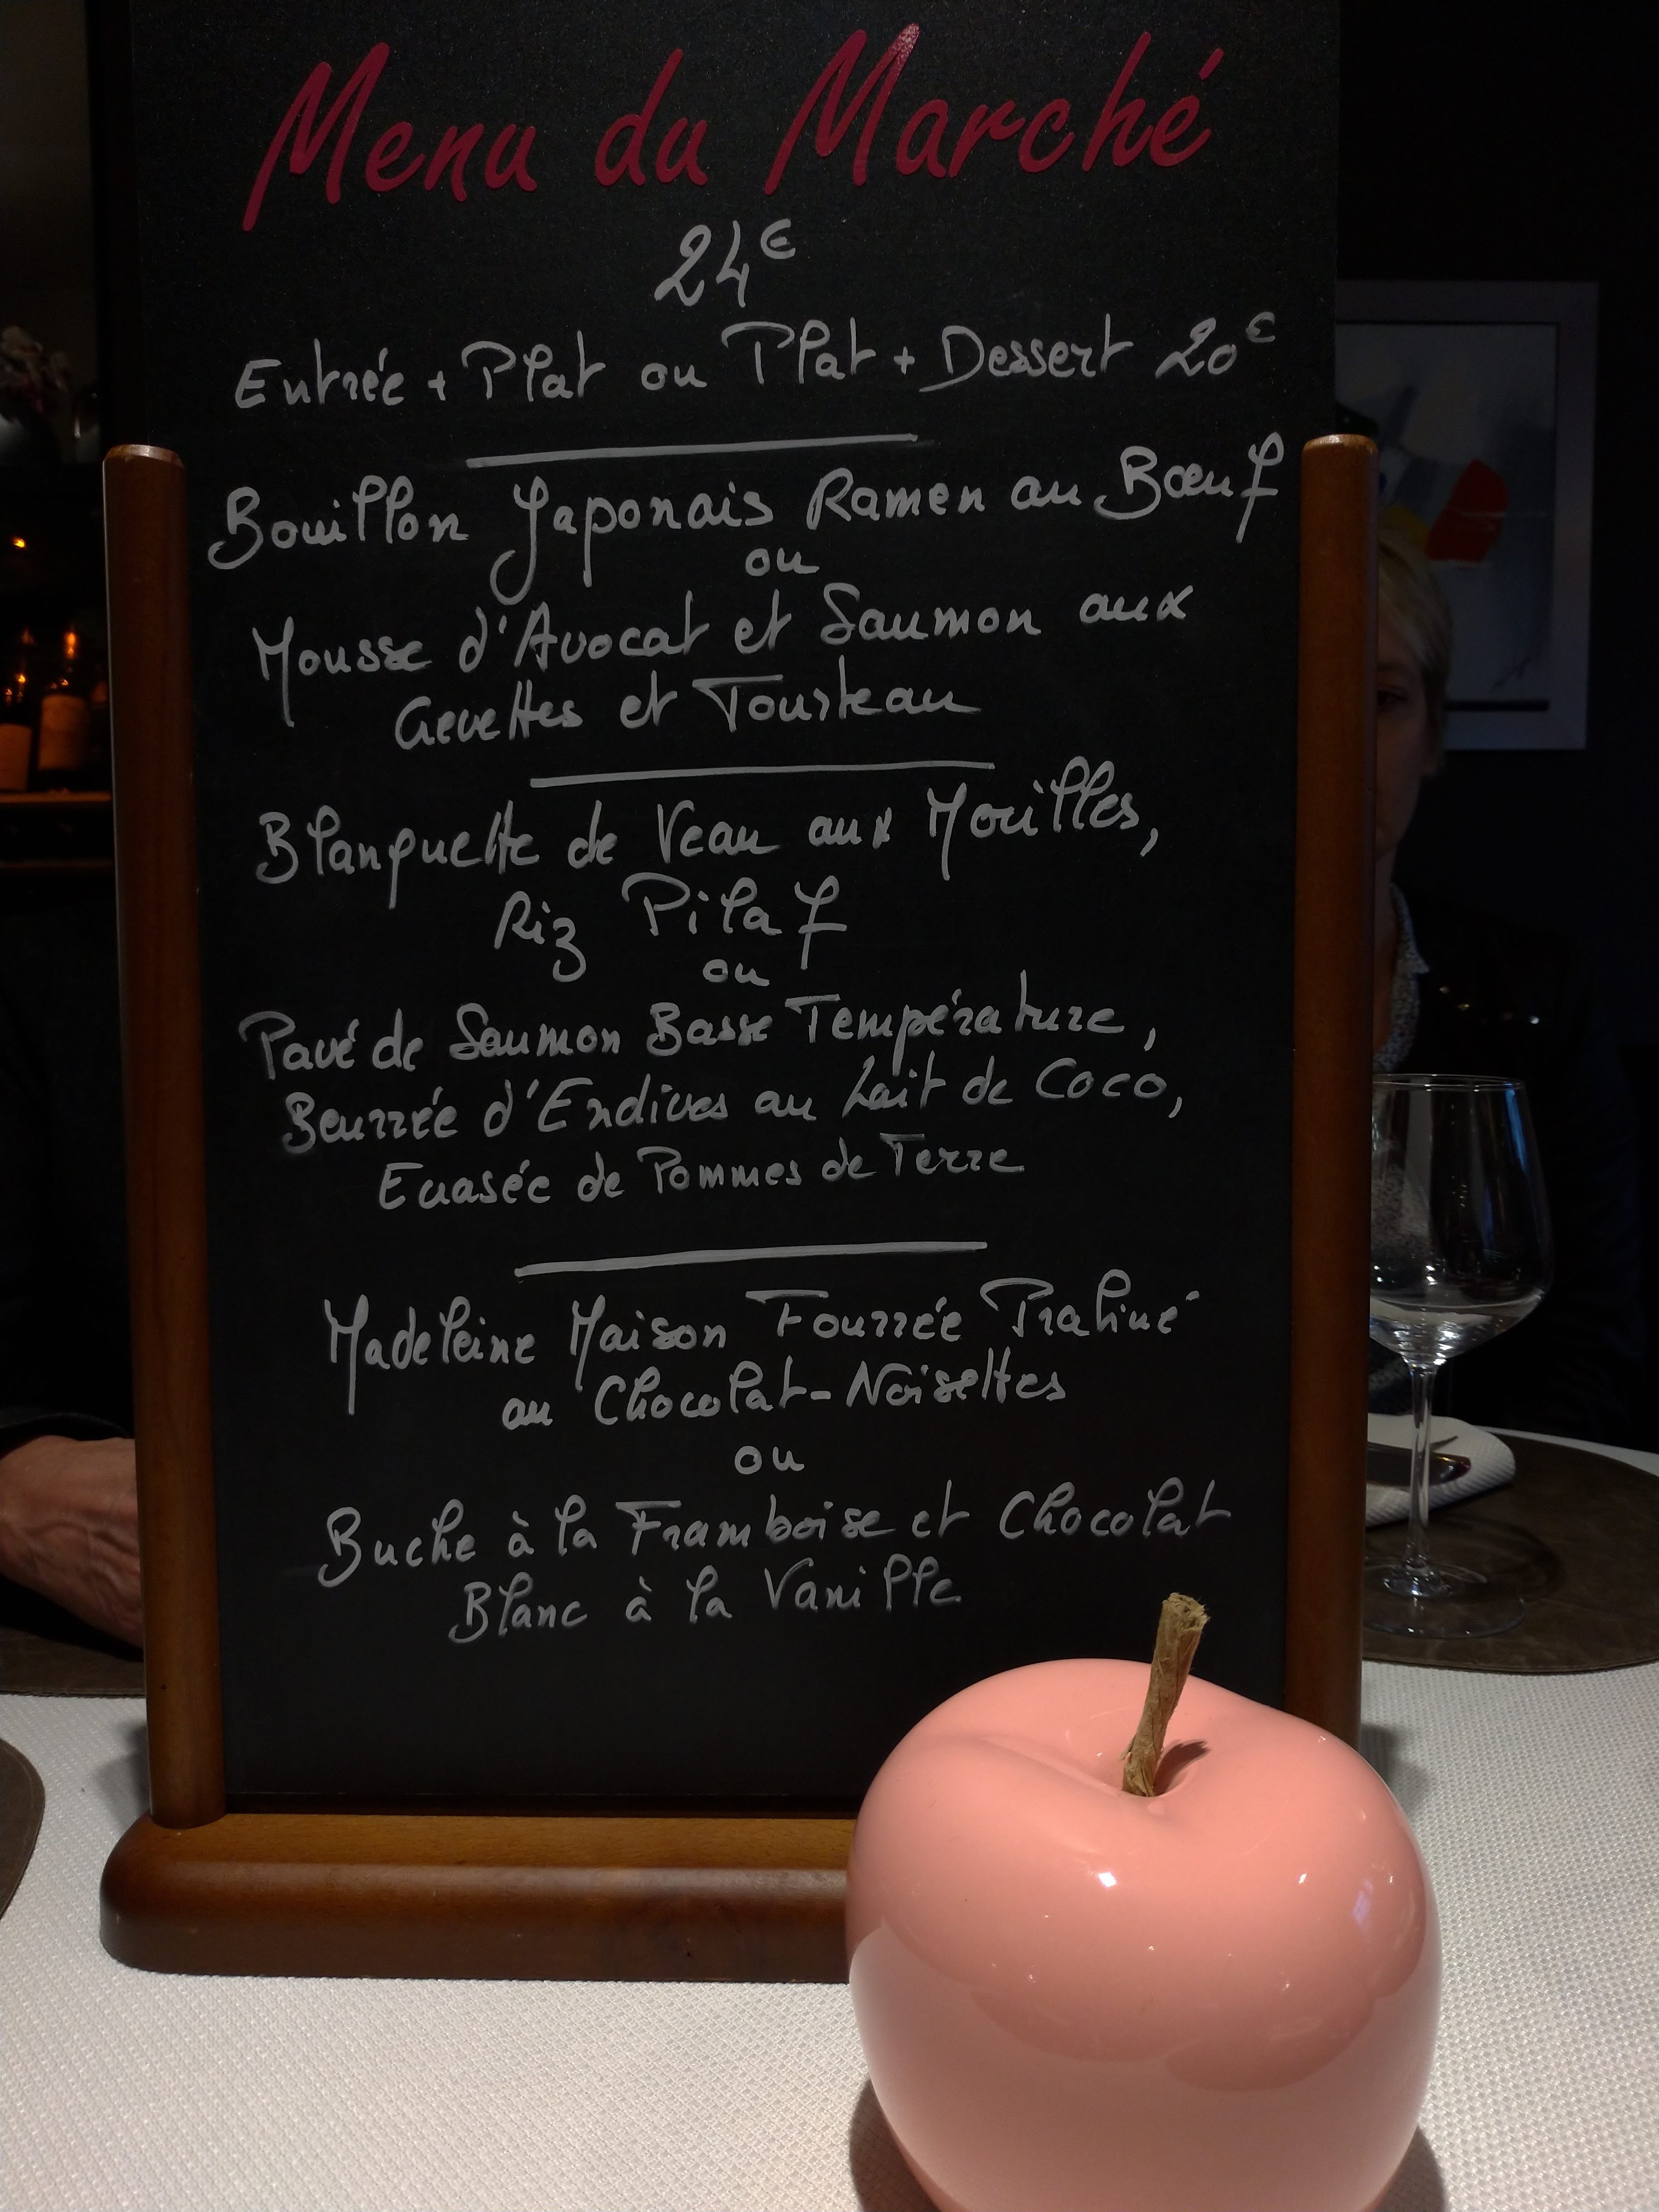 Menu du Marché
24€
Entrée + Plat ou Plat + Dessert 20€
Bouillon Japonais Ramen au Bœuf
ou
Mousse d'Avocat et Saumon aux
Crevettes et Tourteau
Blanquette de Veau aux Morilles,
Riz Pilaf
ou
Pavé de Saumon Basse Température,
Beurrée d'Endives au Lait de Coco,
Ecrasée de Pommes de Terre
Madeleine Maison Fourrée Praliné
au Chocolat-Noisettes
ou
Buche à la Framboise et Chocolat
Blanc à la Vanille